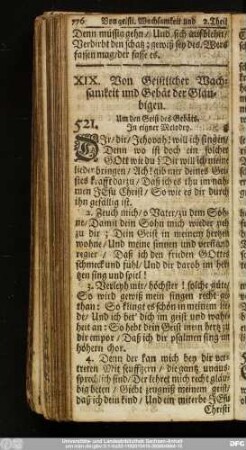 776 Von geistl. Wachsamkeit und 2. Theil
Denn müssig gehn/ Und sich aufblehn/
Verderbt den schatz; gewiß sey des. Wers
fassen mag/der fasse es.
XIX. Von Geistlicher Wach-
samkeit und Gebät der Gläu-
bigen.
Um den Geist des Gebäts.
521. In eigner Melodey.
DIr/dir/Jehovah! will ich singen/
Denn wo ist doch ein solcher
GOtt wie du? Dir will ich meine
lieder bringen/ Ach! gib mir deines Gei-
stes krafft darzu/ Daß ich es thu im nah-
men JEsu Christ/ So wie es dir durch
ihn gefällig ist.
2. Zeuch mich/ o Vater/ zu dem Söh-
ne/ Damit dein Sohn mich wieder zieh
zu dir; Dein Geist in meinem hertzen
wohne/ Und meine sinnen und verstand
regier/ Daß ich den frieden GOttes
schmeck und fühl/ Und dir darob im hertz-
zen sing und spiel!
3. Verleyh mir/ höchster! solche güte/
So wird gewiß mein singen recht ge-
than: So klingt es schön in meinem lie-
de/ Und ich bet' dich im geist und wahr-
heit an: So hebt dein Geist mein hertz zu
dir empor/ Daß ich dir psalmen sing im
höhern chor.
4. Denn der kan mich bey dir ver-
treten Mit seufftzern/ die gantz unaus-
sprechlich sind/ Der lehret mich recht gläu-
big beten/ Giebt zeugniß meinem geist/
daß ich dein kind/ Und ein miterbe JEsu
Christi
DFG
Universitäts- und Landesbibliothek Sachsen-Anhalt